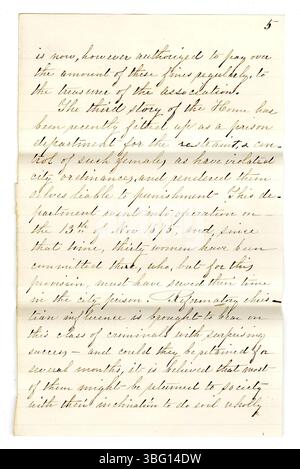 5
is now, however authorized to pay over
the amount of these fines regularly, to
the treasurer of the association.
The third story of the Home has
been recently fitted up as a prison
department for the restraint & con-
trol of such females, as have violated
city ordinances, and rendered them
selves liable to punishment. This de-
partment went into operation on
the 13th of Nov 1873, and, since
that time, thirty women have been
committed there, who, but for this
provision, must have served their time
in the city prison. Reformatory chris-
tian influence is brought to bear on
this class of criminals with surprising
success — and could they be retained for
several months, it is believed that most
of them might be returned to society
with their inclination to do evil wholly